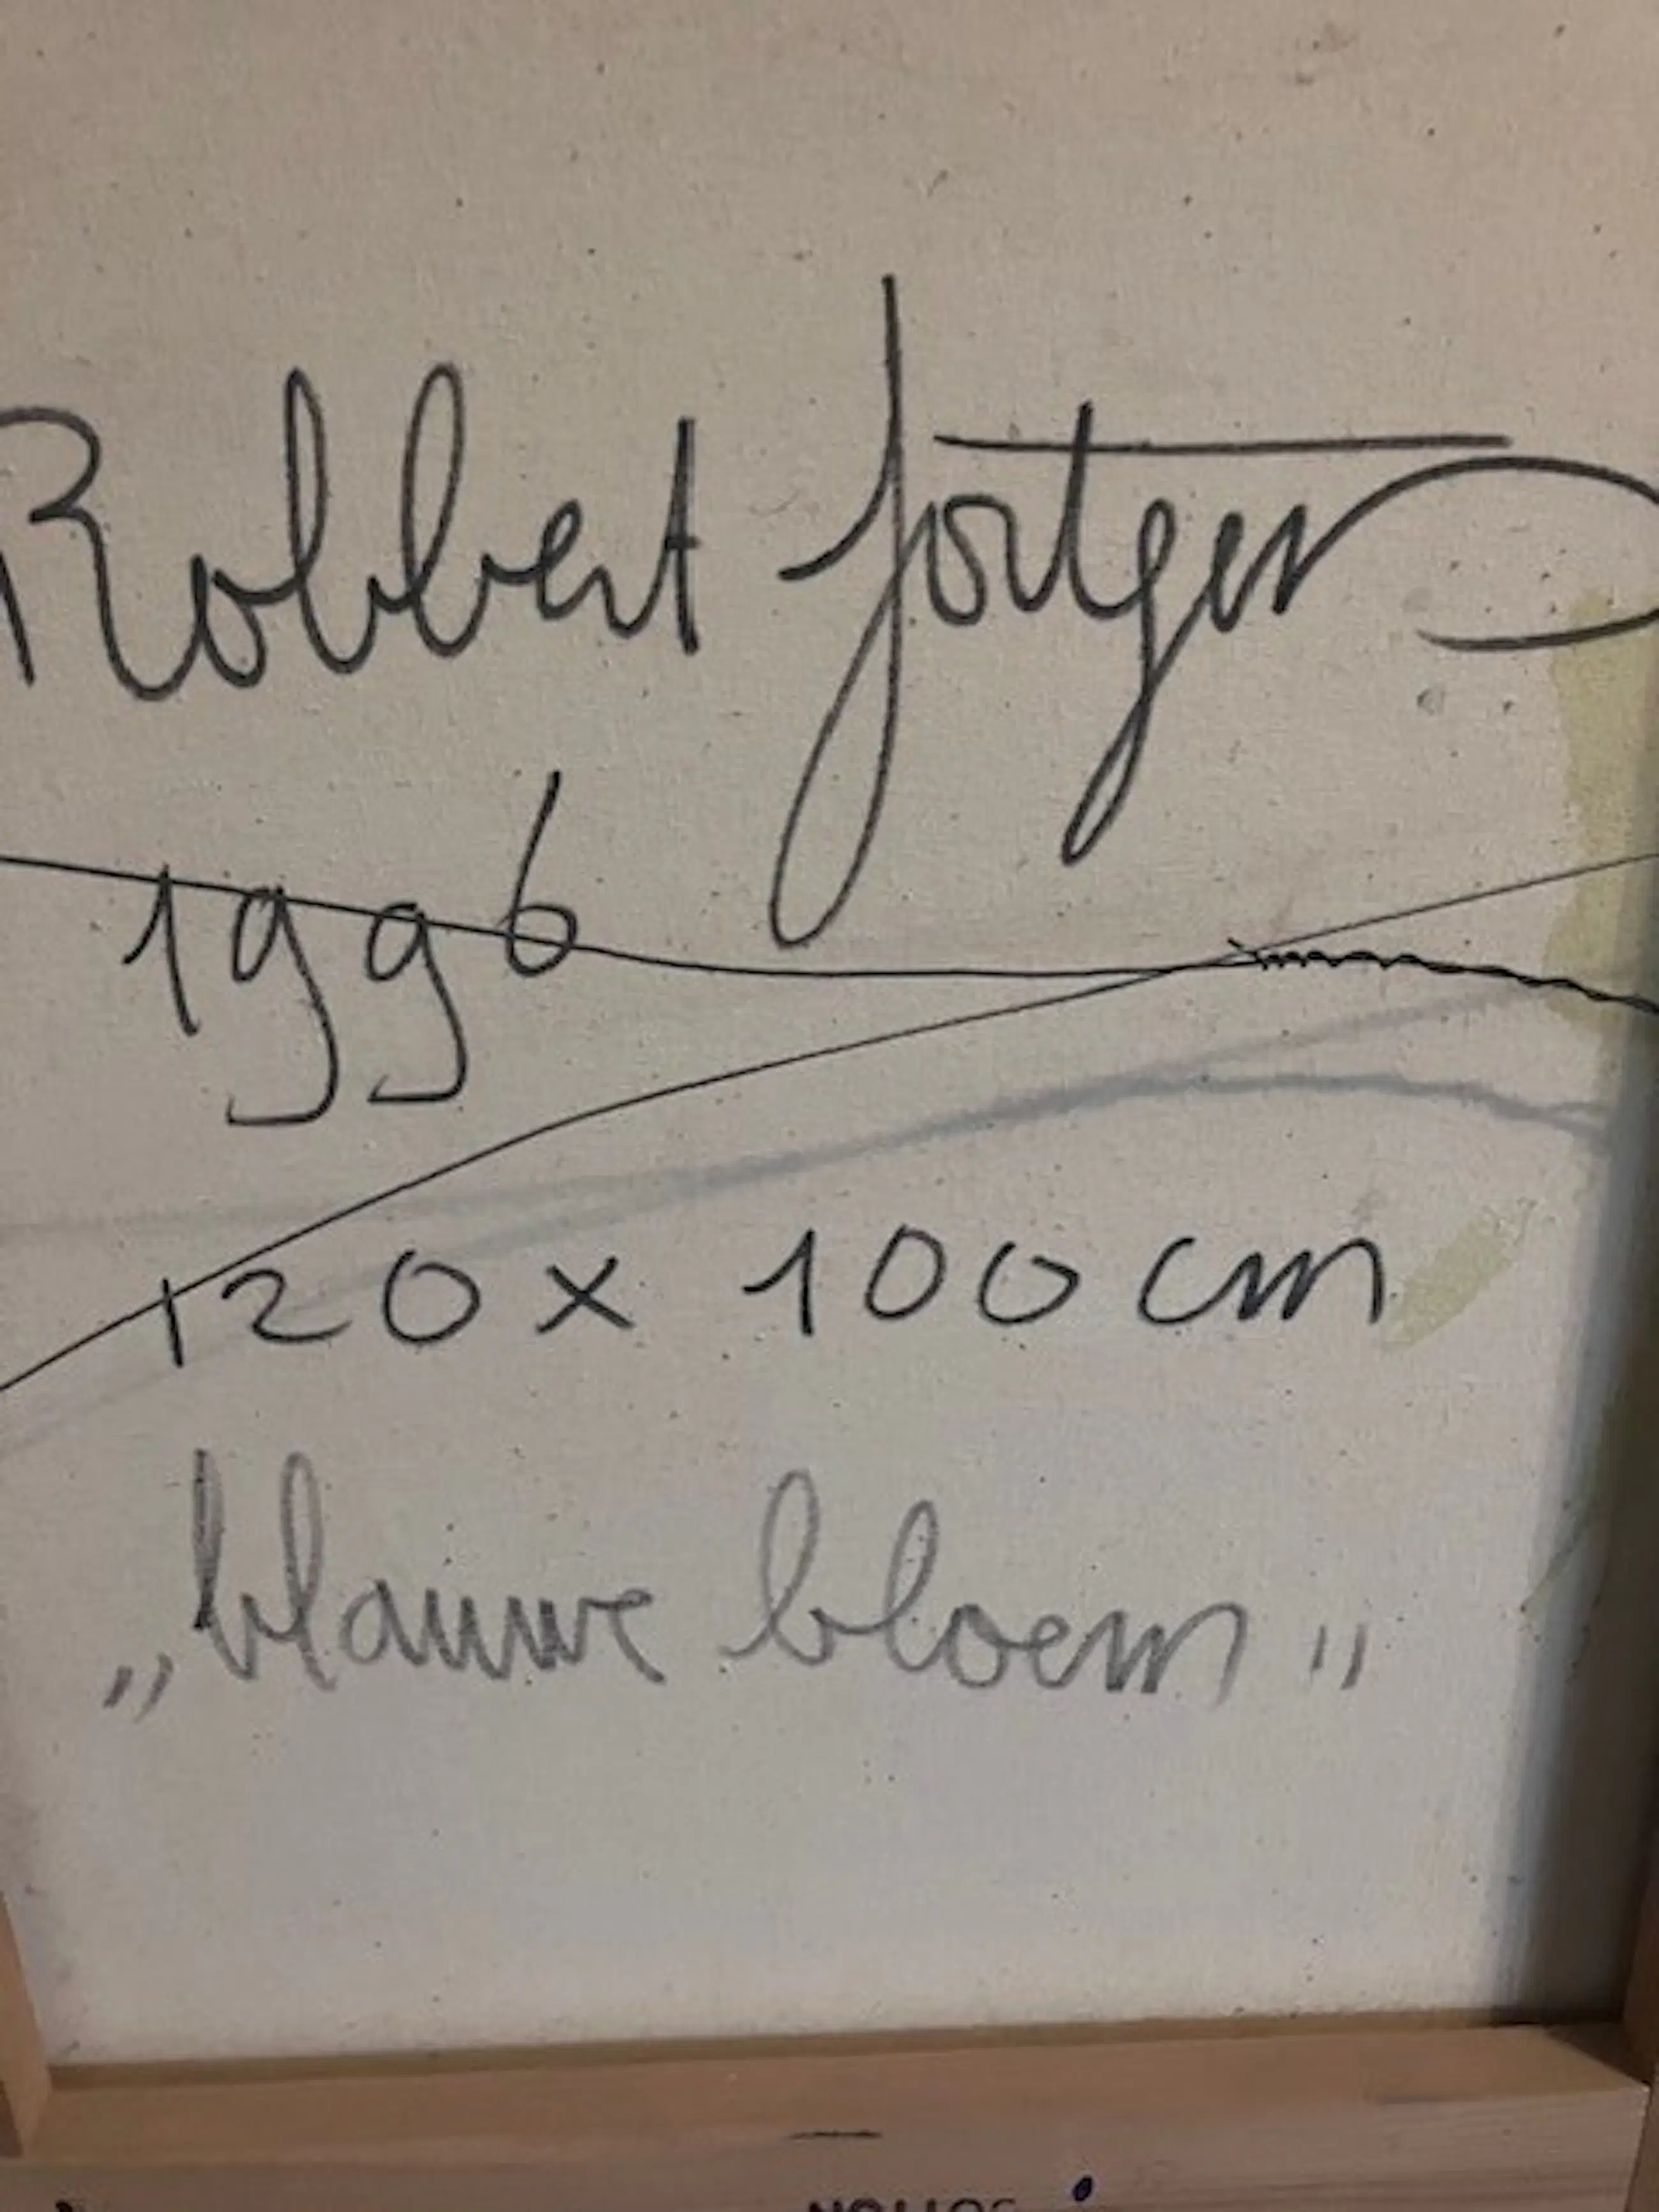 Robbert Fortgens
1996
120 x 100 cm
„blauwe bloem"